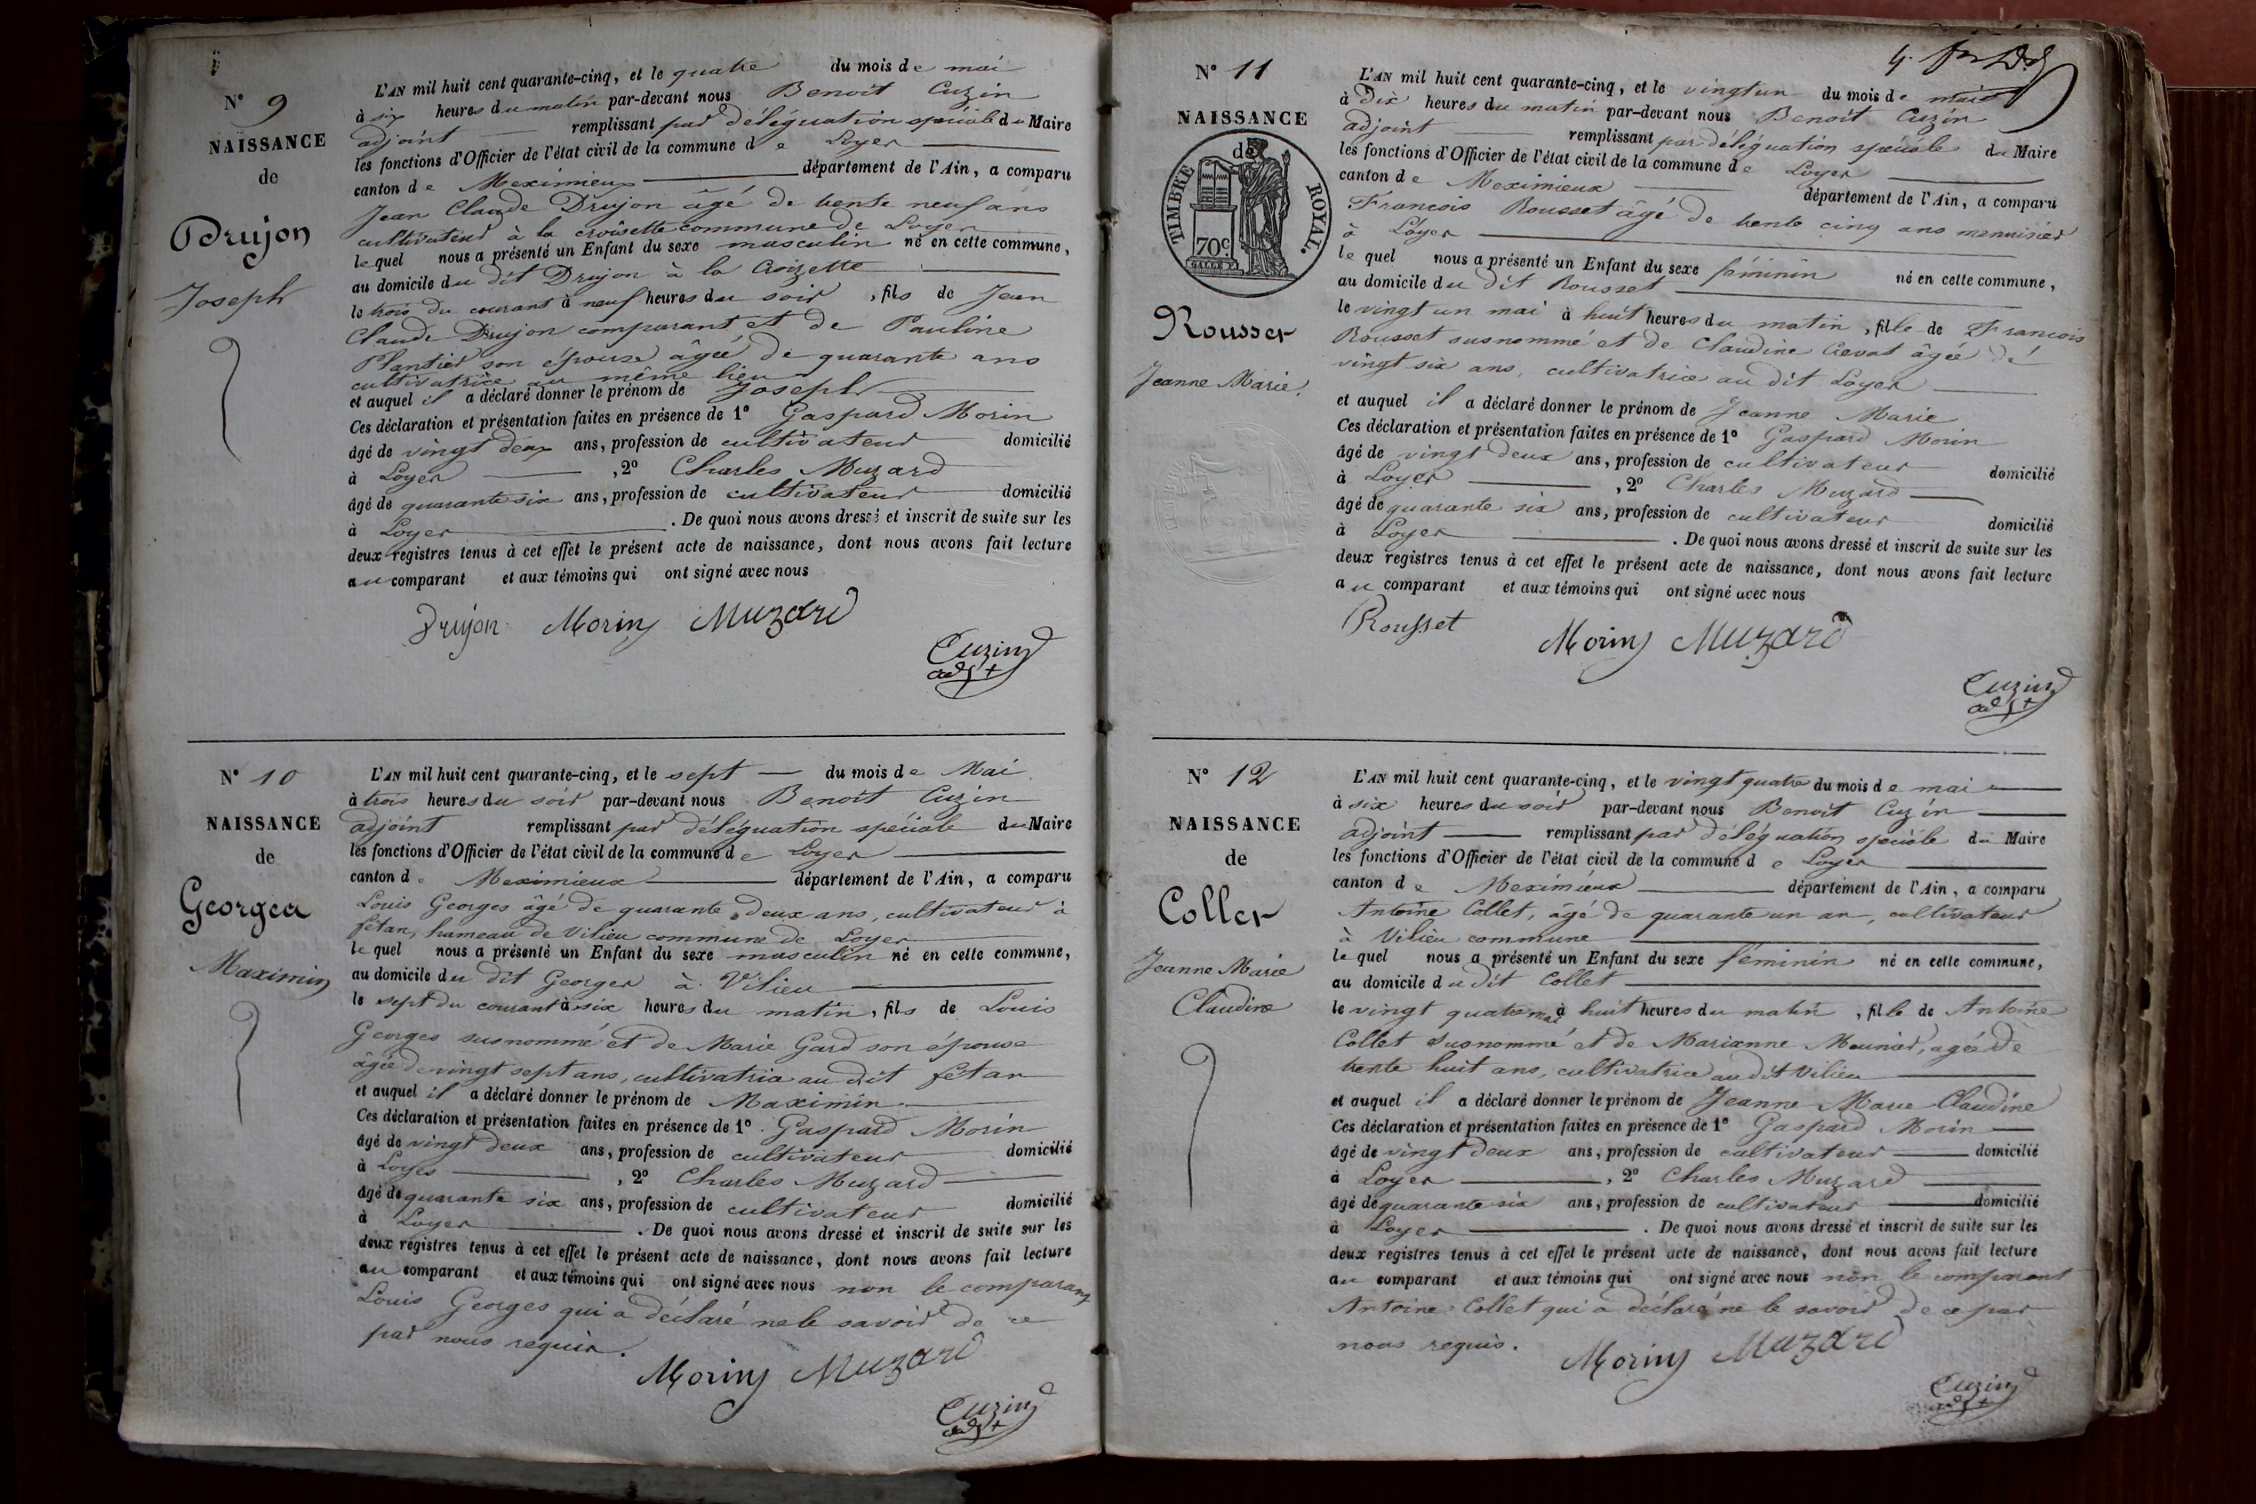 N° 9
NAISSANCE
de
Drujon
Joseph
L'AN mil huit cent quarante-cinq, et le quatre du mois de mai
à six heures du matin par-devant nous Benoit Cuzin
adjoint remplissant par déléguation spéciale du Maire
les fonctions d'Officier de l'état civil de la commune de Loyes
canton de Meximieux département de l'Ain, a comparu
Jean Claude Drujon âgé de trente neuf ans
cultivateur à la croisette commune de Loyes
lequel nous a présenté un Enfant du sexe masculin né en cette commune,
au domicile du dit Drujon à la Croizette
le trois du courant à neuf heures du soir, fils de Jean
Claude Drujon comparant et de Pauline
Plantier son épouse âgée de quarante ans
cultivatrice au même lieu
et auquel il a déclaré donner le prénom de Joseph
Ces déclaration et présentation faites en présence de 1° Gaspard Morin
âgé de vingt deux ans, profession de cultivateur domicilié
à Loyes, 2° Charles Muzard
âgé de quarante six ans, profession de cultivateur domicilié
à Loyes. De quoi nous avons dressé et inscrit de suite sur les
deux registres tenus à cet effet le présent acte de naissance, dont nous avons fait lecture
au comparant et aux témoins qui ont signé avec nous
Drujon Morin Muzard
Cuzin
adjt
N° 10
NAISSANCE
de
Georges
Maximin
L'AN mil huit cent quarante-cinq, et le sept du mois de Mai
à trois heures du soir par-devant nous Benoit Cuzin
adjoint remplissant par déléguation spéciale du Maire
les fonctions d'Officier de l'état civil de la commune de Loyes
canton de Meximieux département de l'Ain, a comparu
Louis Georges âgé de quarante deux ans, cultivateur à
fétan, hameau de Vilieu commune de Loyes
lequel nous a présenté un Enfant du sexe masculin né en cette commune,
au domicile du dit Georges à Vilieu
le sept du courant à six heures du matin, fils de Louis
Georges susnommé et de Marie Gard son épouse
âgée de vingt sept ans, cultivatrice au dit fétan
et auquel il a déclaré donner le prénom de Maximin
Ces déclaration et présentation faites en présence de 1° Gaspard Morin
âgé de vingt deux ans, profession de cultivateur domicilié
à Loyes, 2° Charles Muzard
âgé de quarante six ans, profession de cultivateur domicilié
à Loyes. De quoi nous avons dressé et inscrit de suite sur les
deux registres tenus à cet effet le présent acte de naissance, dont nous avons fait lecture
au comparant et aux témoins qui ont signé avec nous non le comparant
Louis Georges qui a déclaré ne le savoir de ce
par nous requis.
Morin Muzard
Cuzin
adjt
N° 11
NAISSANCE
de
TIMBRE ROYAL.
70c.
Rousset
Jeanne Marie
L'AN mil huit cent quarante-cinq, et le vingt un du mois de mai
à dix heures du matin par-devant nous Benoit Cuzin
adjoint remplissant par déléguation spéciale du Maire
les fonctions d'Officier de l'état civil de la commune de Loyes
canton de Meximieux département de l'Ain, a comparu
François Rousset âgé de trente cinq ans menuisier
à Loyes
lequel nous a présenté un Enfant du sexe féminin né en cette commune,
au domicile du dit Rousset
le vingt un mai à huit heures du matin, fille de François
Rousset susnommé et de Claudine Crevat âgée de
vingt six ans, cultivatrice au dit Loyes
et auquel il a déclaré donner le prénom de Jeanne Marie
Ces déclaration et présentation faites en présence de 1° Gaspard Morin
âgé de vingt deux ans, profession de cultivateur domicilié
à Loyes, 2° Charles Muzard
âgé de quarante six ans, profession de cultivateur domicilié
à Loyes. De quoi nous avons dressé et inscrit de suite sur les
deux registres tenus à cet effet le présent acte de naissance, dont nous avons fait lecture
au comparant et aux témoins qui ont signé avec nous
Rousset Morin Muzard
Cuzin
adjt
N° 12
NAISSANCE
de
Collet
Jeanne Marie
Claudine
L'AN mil huit cent quarante-cinq, et le vingt quatre du mois de mai
à six heures du soir par-devant nous Benoit Cuzin
adjoint remplissant par déléguation spéciale du Maire
les fonctions d'Officier de l'état civil de la commune de Loyes
canton de Meximieux département de l'Ain, a comparu
Antoine Collet, âgé de quarante un an, cultivateur
à Vilieu commune
lequel nous a présenté un Enfant du sexe féminin né en cette commune,
au domicile du dit Collet
le vingt quatre mai à huit heures du matin, fille de Antoine
Collet susnommé et de Marianne Meunier, agée de
trente huit ans, cultivatrice au dit Vilieu
et auquel il a déclaré donner le prénom de Jeanne Marie Claudine
Ces déclaration et présentation faites en présence de 1° Gaspard Morin
âgé de vingt deux ans, profession de cultivateur domicilié
à Loyes, 2° Charles Muzard
âgé de quarante six ans, profession de cultivateur domicilié
à Loyes. De quoi nous avons dressé et inscrit de suite sur les
deux registres tenus à cet effet le présent acte de naissance, dont nous avons fait lecture
au comparant et aux témoins qui ont signé avec nous non le comparant
Antoine Collet qui a déclaré ne le savoir de ce par
nous requis.
Morin Muzard
Cuzin
adjt